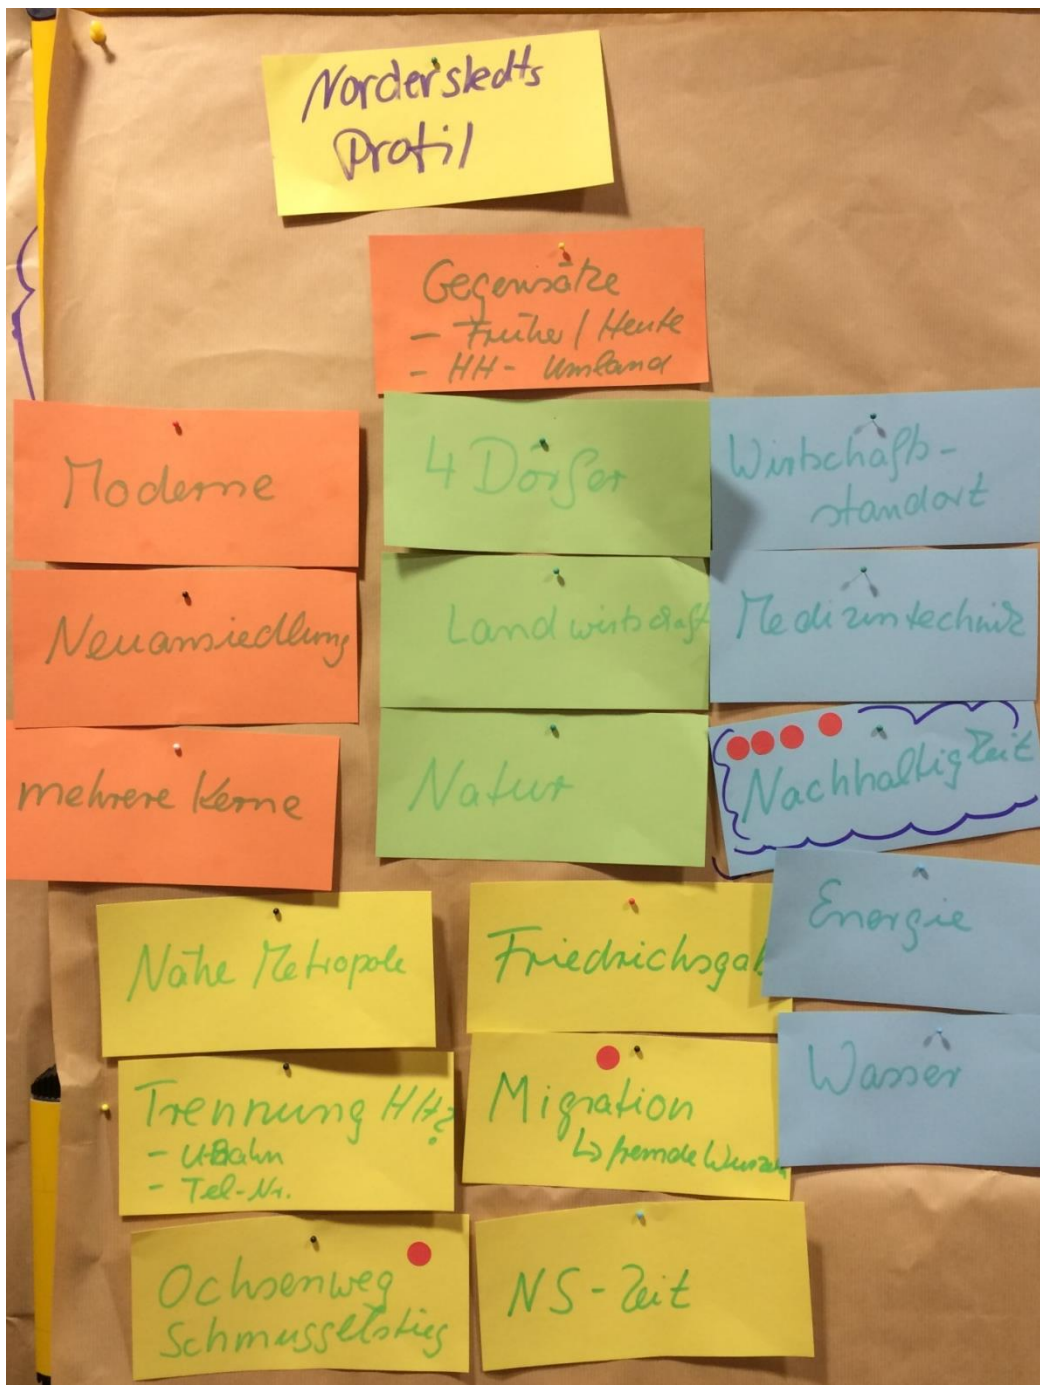 Norderstedts
Profil
Gegensätze
- Früher / Heute
- HH - Umland
Moderne
Neuansiedlung
mehrere Kerne
4 Dörfer
Landwirtschaft
Natur
Wirtschafts-
standort
Medizintechnik
Nachhaltigkeit
Energie
Wasser
Nähe Metropole
Trennung HH?
- U-Bahn
- Tel-Nr.
Ochsenweg
Schmuggelstieg
Friedrichsgab
Migration
↳ fremde Wurzeln
NS-Zeit